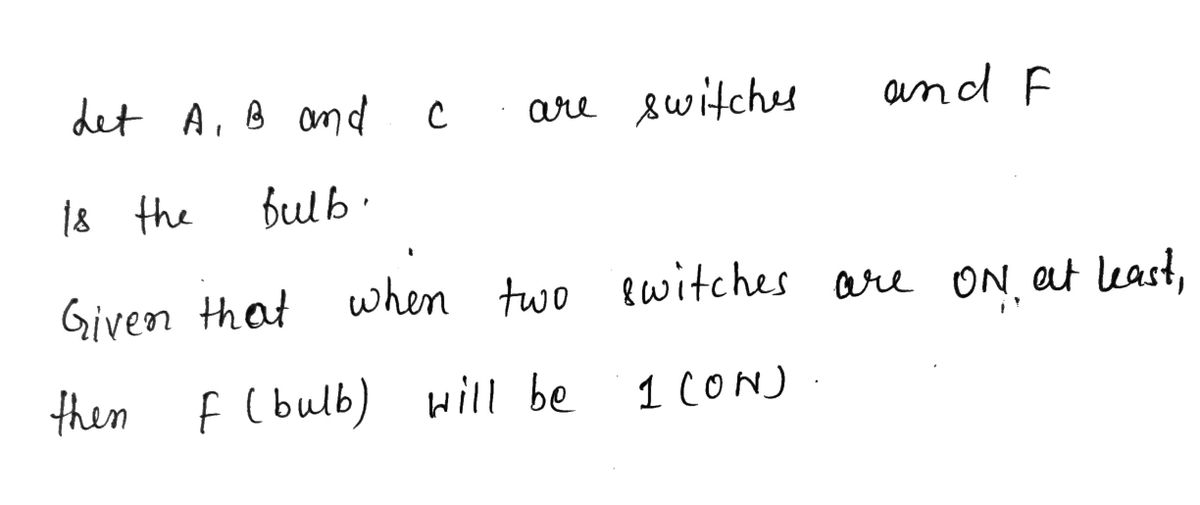 Let A, B and C are switches and F
Is the bulb.
Given that when two switches are ON, at least,
then F (bulb) will be 1 (ON).